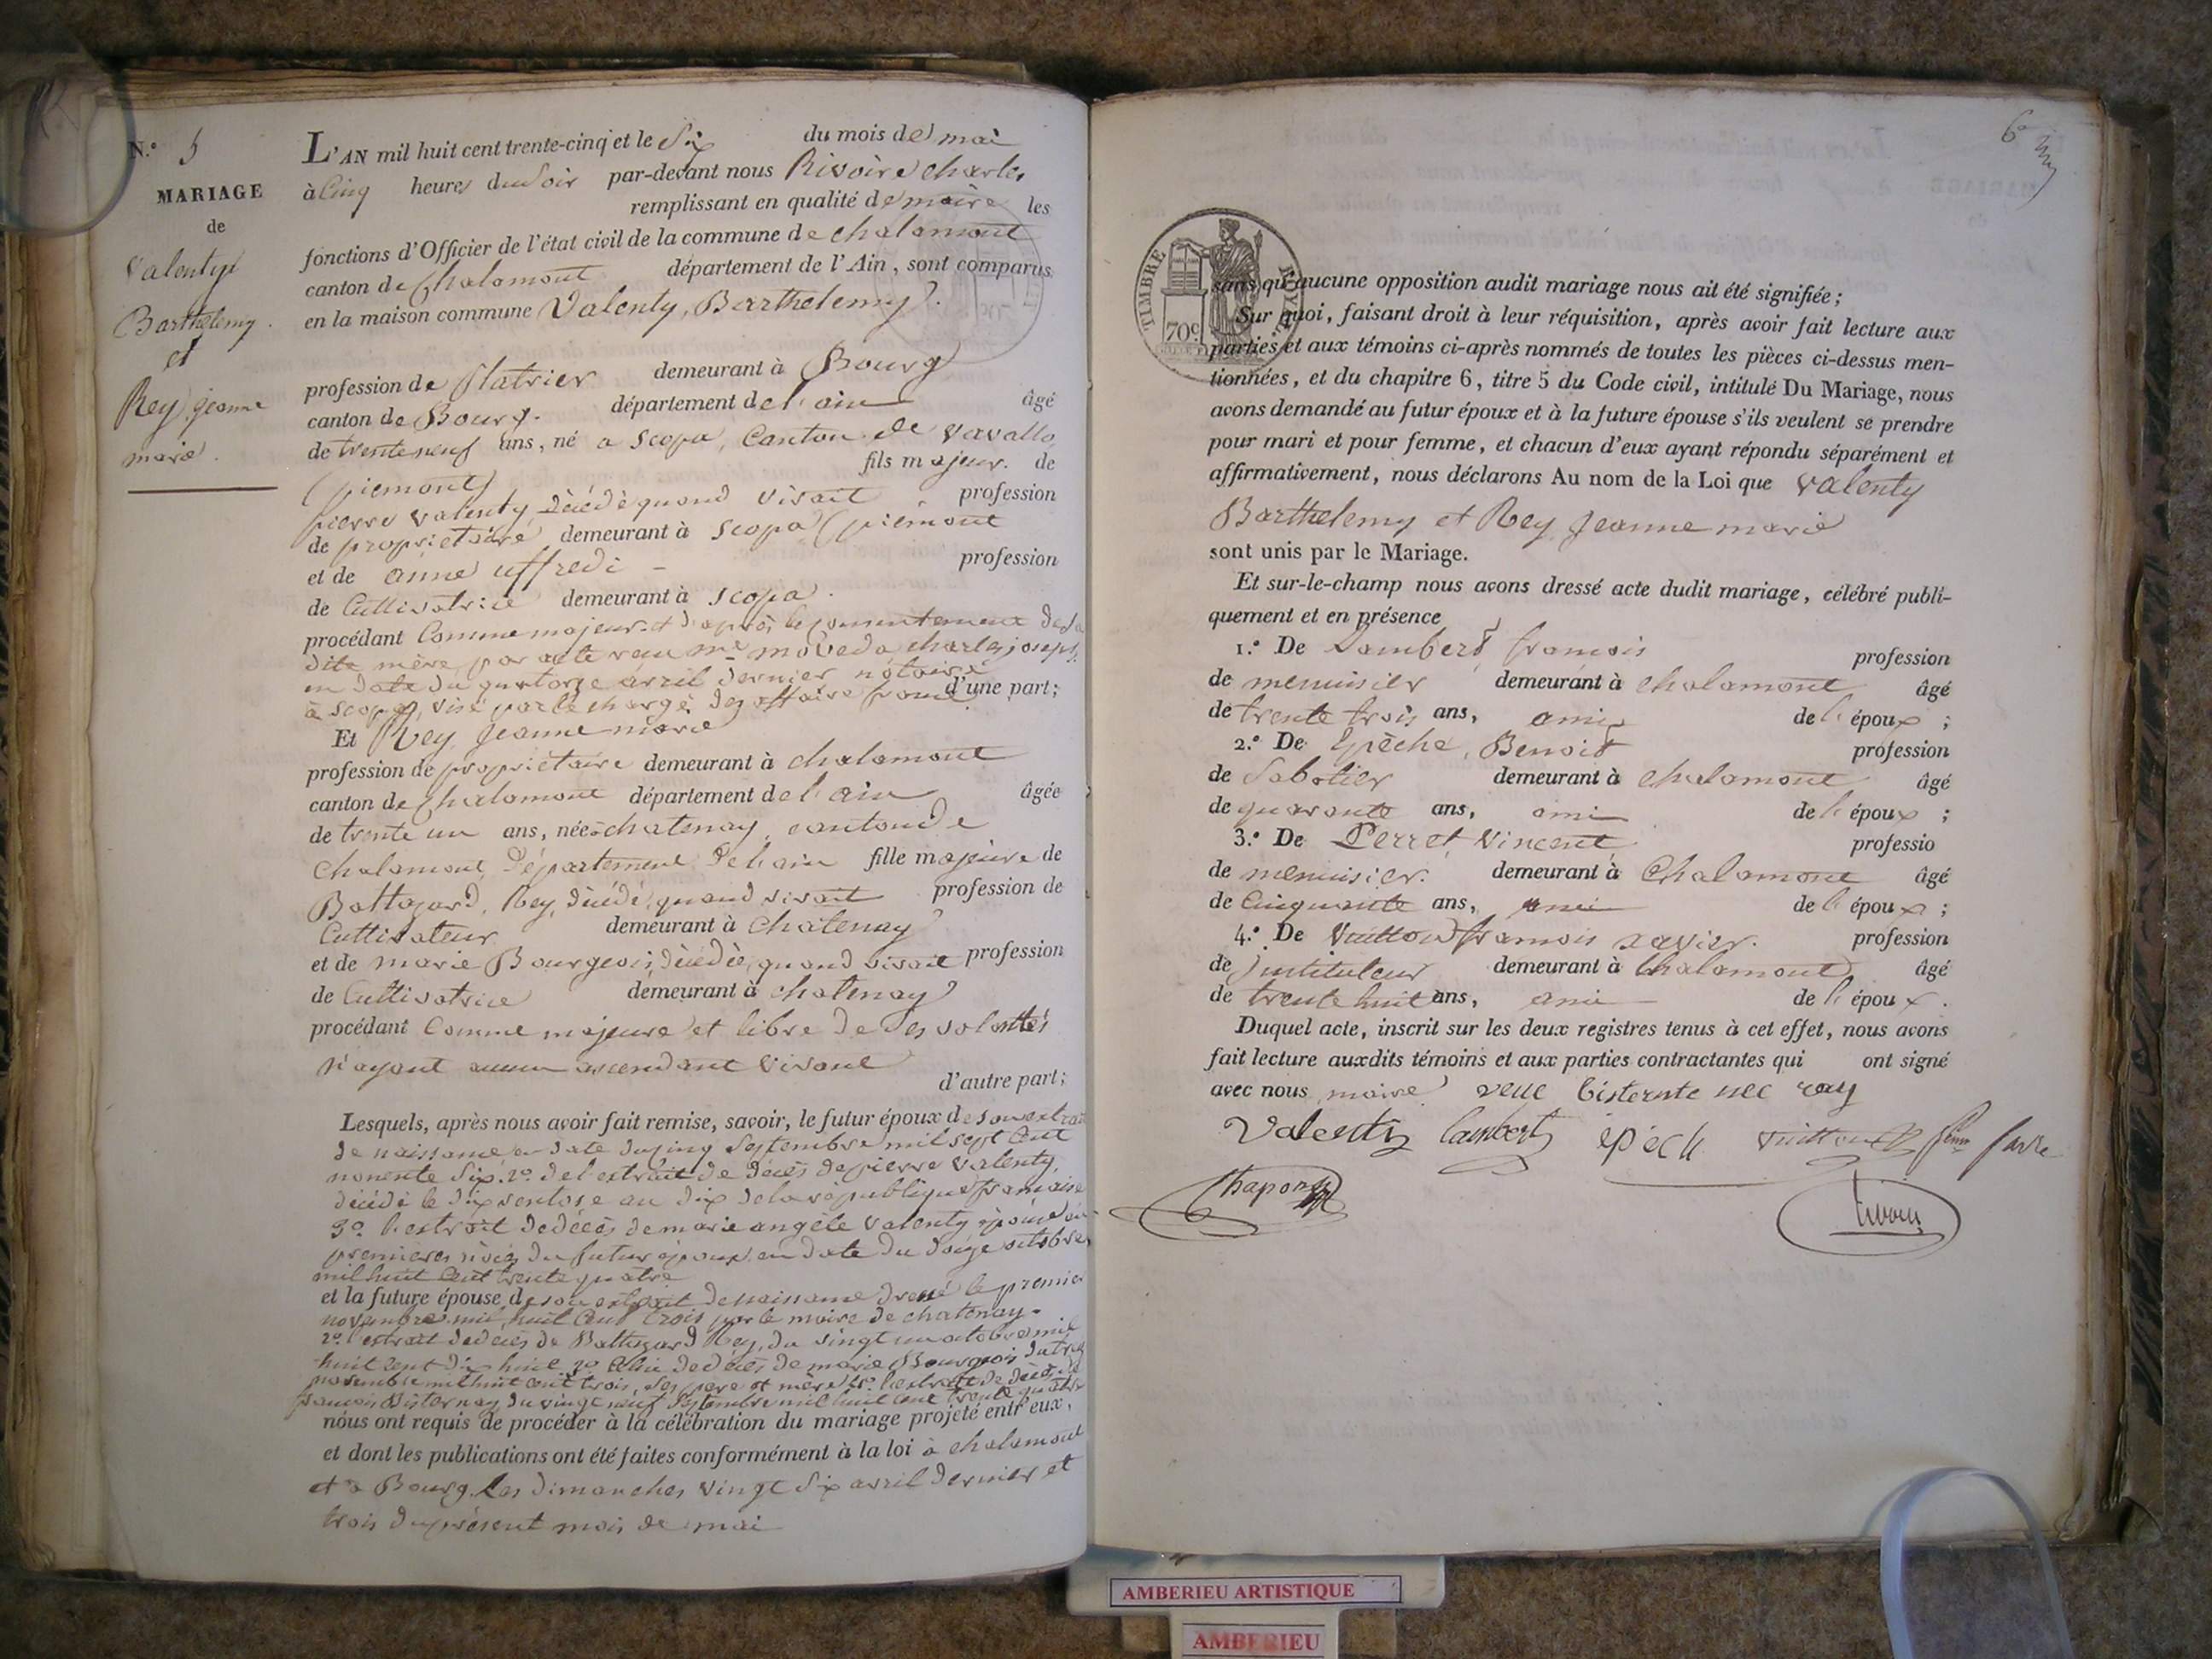 N.º 5
MARIAGE
de
Valenty
Barthelemy.
et
Rey jeanne
marie.
L'AN mil huit cent trente-cinq et le Six du mois de mai
à Cinq heures du Soir par-devant nous Rivoire charles
remplissant en qualité de maire les
fonctions d'Officier de l'état civil de la commune de chalamont
canton de Chalamont département de l'Ain, sont comparus
en la maison commune Valenty, Barthelemy.
profession de Platrier demeurant à Bourg
canton de Bourg. département de l'ain âgé
de trente neuf ans, né a scopa, Canton de vavallo
(piemont) fils majeur. de
pierre valenty décédé quand vivait profession
de propriétaire demeurant à scopa (piémont
et de anne uffredi - profession
de Cultivatrice demeurant à scopa.
procédant Comme majeur et d'après le consentement de sa
dite mère par acte reçu me charles joseph
en date du quatorze avril dernier notaire
à scopa, visé par le chargé des affaire d'une part;
Et Rey Jeanne marie
profession de propriétaire demeurant à chalamont
canton de Chalamont département de l'ain âgée
de trente un ans, née à chatenay, canton de
Chalamont, Département de l'ain fille majeure de
Baltazard, Rey, décédé, quand vivait profession de
Cultivateur demeurant à chatenay
et de marie Bourgeois, décédée, quand vivait profession
de Cultivatrice demeurant à chatenay
procédant Comme majeure et libre de ses volontés
n'ayant aucun ascendant vivant
d'autre part;
Lesquels, après nous avoir fait remise, savoir, le futur époux de son extrait
de naissance en date du cinq Septembre mil sept Cent
nonente Six. 2º. de l'extrait de décès de pierre valenty,
décédé le dix ventose an dix de la république française
3º. l'extrait de décès de marie angèle valenty épouse en
premieres noces du futur époux en date du doize octobre
mil huit Cent trente quatre
et la future épouse de son extrait de naissance dressé le premier
novembre mil huit Cent trois par le maire de chatenay.
2º. extrait de décès de Baltazard Rey, du vingt un octobre mil
huit cent dix huit 3º. Celui de décès de marie Bourgeois du trois
novembre mil huit cent trois, ses père et mère 4º. l'extrait de décès de
françois Bisternay du vingt neuf Septembre mil huit cent trente quatre
nous ont requis de procéder à la célébration du mariage projeté entr'eux,
et dont les publications ont été faites conformément à la loi à chalamont
et à Bourg. Les dimanches vingt Six avril dernier et
trois du présent mois de mai
TIMBRE ROYAL
70c
sans qu'aucune opposition audit mariage nous ait été signifiée;
Sur quoi, faisant droit à leur réquisition, après avoir fait lecture aux
parties et aux témoins ci-après nommés de toutes les pièces ci-dessus men-
tionnées, et du chapitre 6, titre 5 du Code civil, intitulé Du Mariage, nous
avons demandé au futur époux et à la future épouse s'ils veulent se prendre
pour mari et pour femme, et chacun d'eux ayant répondu séparément et
affirmativement, nous déclarons Au nom de la Loi que valenty
Barthelemy et Rey Jeanne marie
sont unis par le Mariage.
Et sur-le-champ nous avons dressé acte dudit mariage, célébré publi-
quement et en présence
1.º De Lambert françois profession
de menuisier demeurant à chalamont âgé
de trente trois ans, ami de l'époux;
2.º De Epèche, Benoit profession
de Sabotier demeurant à chalamont âgé
de quarante ans, ami de l'époux;
3.º De Perret Vincent professio
de menuisier. demeurant à Chalamont âgé
de Cinquante ans, ami de l'époux;
4.º De Vuitton françois xavier. profession
de instituteur demeurant à Chalamont âgé
de trente huit ans, ami de l'époux.
Duquel acte, inscrit sur les deux registres tenus à cet effet, nous avons
fait lecture auxdits témoins et aux parties contractantes qui ont signé
avec nous maire veue bisternte nee ray
Valenti Lambert épéch Vuitton
Chapon
Rivoire
AMBERIEU ARTISTIQUE
AMBERIEU